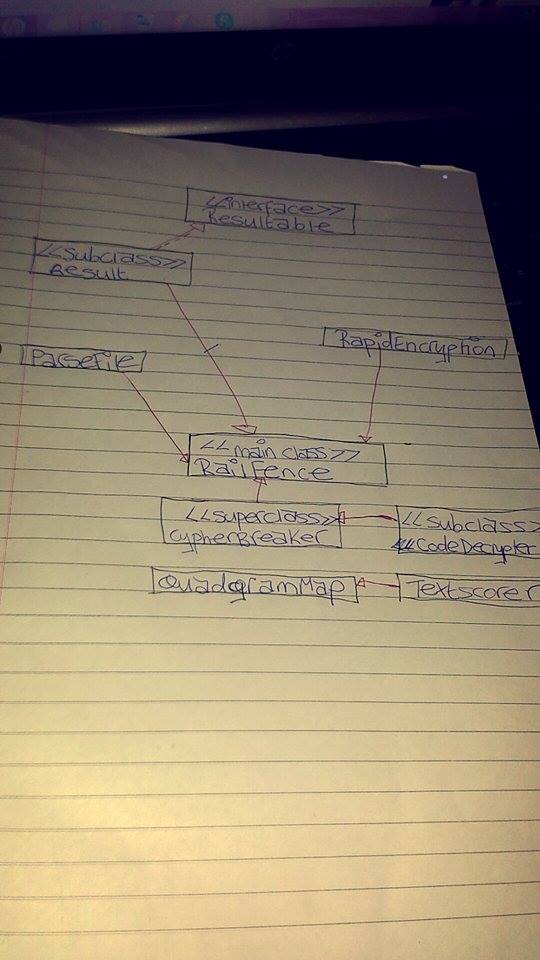 <<interface>>
Resultable
<<Subclass>>
Result
RapidEncryption
ParseFile
<<main class>>
RailFence
<<superclass>>
CypherBreaker
<<subclass>
CodeDecrypter
QuadgramMap
Textscorer